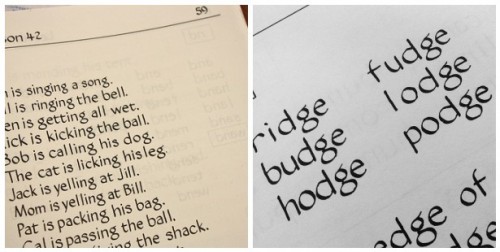 59
on 42
is singing a song.
l is ringing the bell.
en is getting all wet.
ick is kicking the ball.
Bob is calling his dog.
The cat is licking his leg.
Jack is yelling at Jill.
Mom is yelling at Bill.
Pat is packing his bag.
Cal is passing the ball.
the shack.
fudge
ridge lodge
budge podge
hodge
edge of